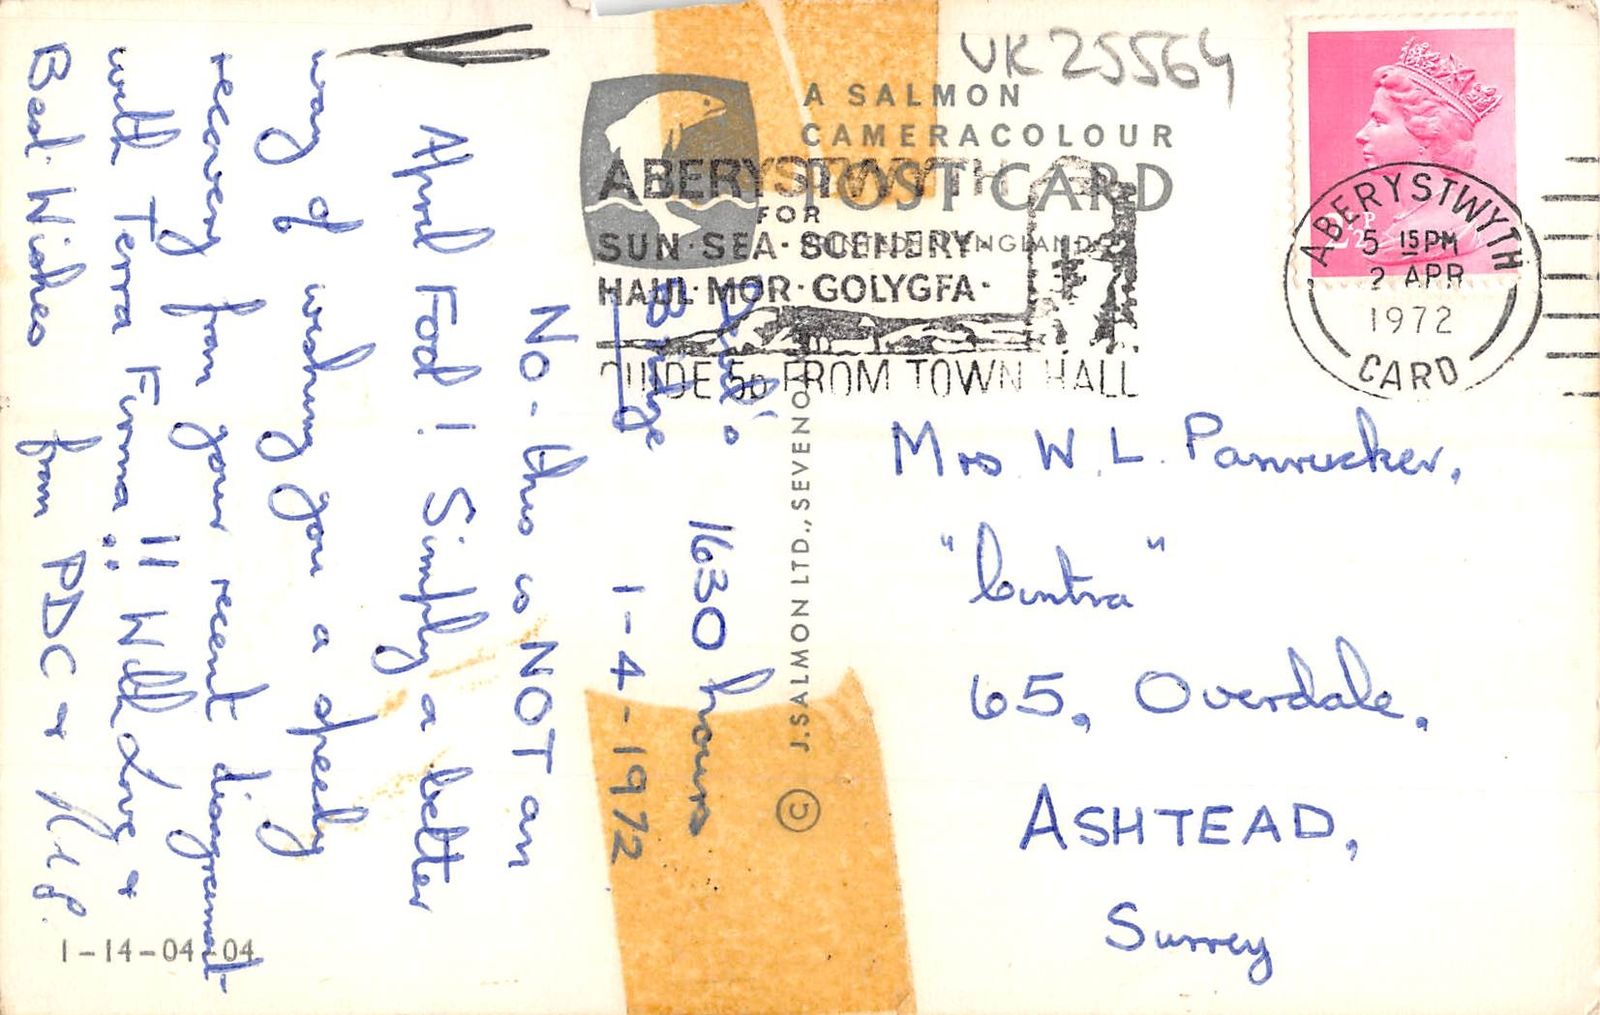 Devil's
Bridge
1630 hours
1-4-1972
No - this is NOT an
April Fool! Simply a better
way of wishing you a speedy
recovery from your recent disagreement
with Terra Firma!! With Love &
Best Wishes from PDC &
1-14-04-04
UK 25564
A SALMON
CAMERACOLOUR
POST CARD
PRINTED IN ENGLAND
© J. SALMON LTD., SEVENOAKS
ABERYSTWYTH
FOR
SUN · SEA · SCENERY
HAUL · MOR · GOLYGFA ·
GUIDE 5p FROM TOWN HALL
2½P
ABERYSTWYTH
5 15PM
2 APR
1972
CARD
Mrs W. L. Pannrucker,
"Cintra"
65, Overdale,
ASHTEAD,
Surrey